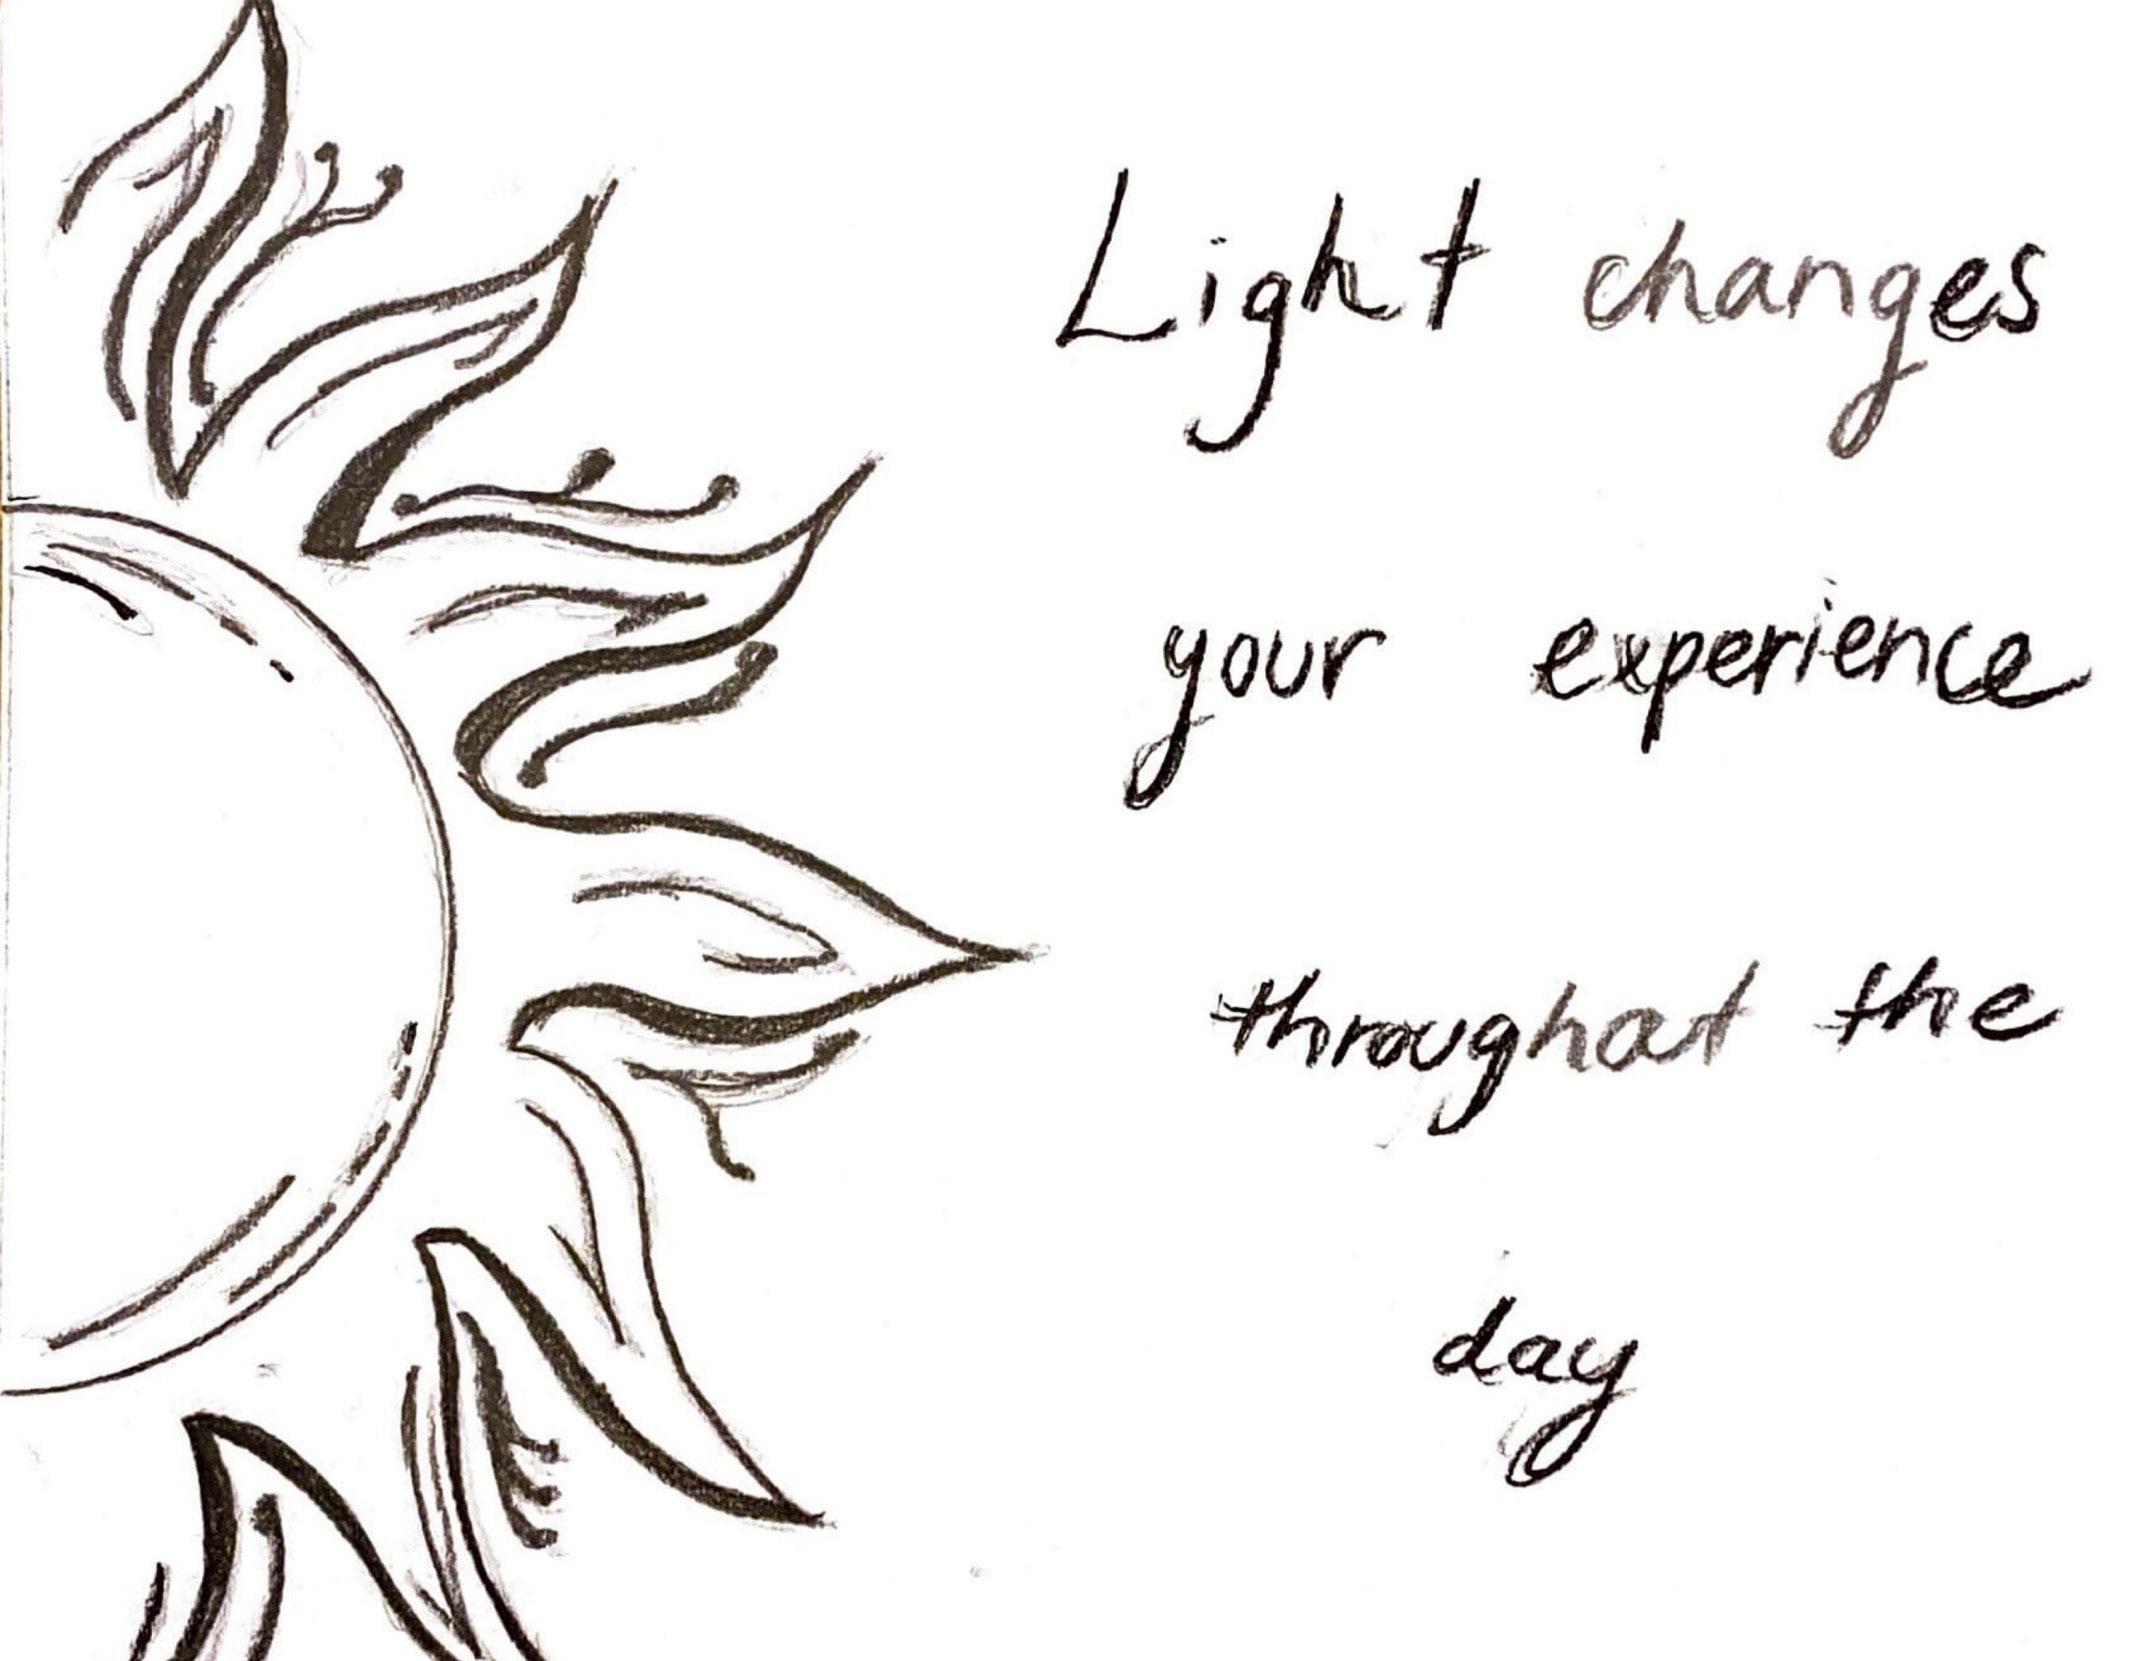 Light changes
your experience
throughout the
day